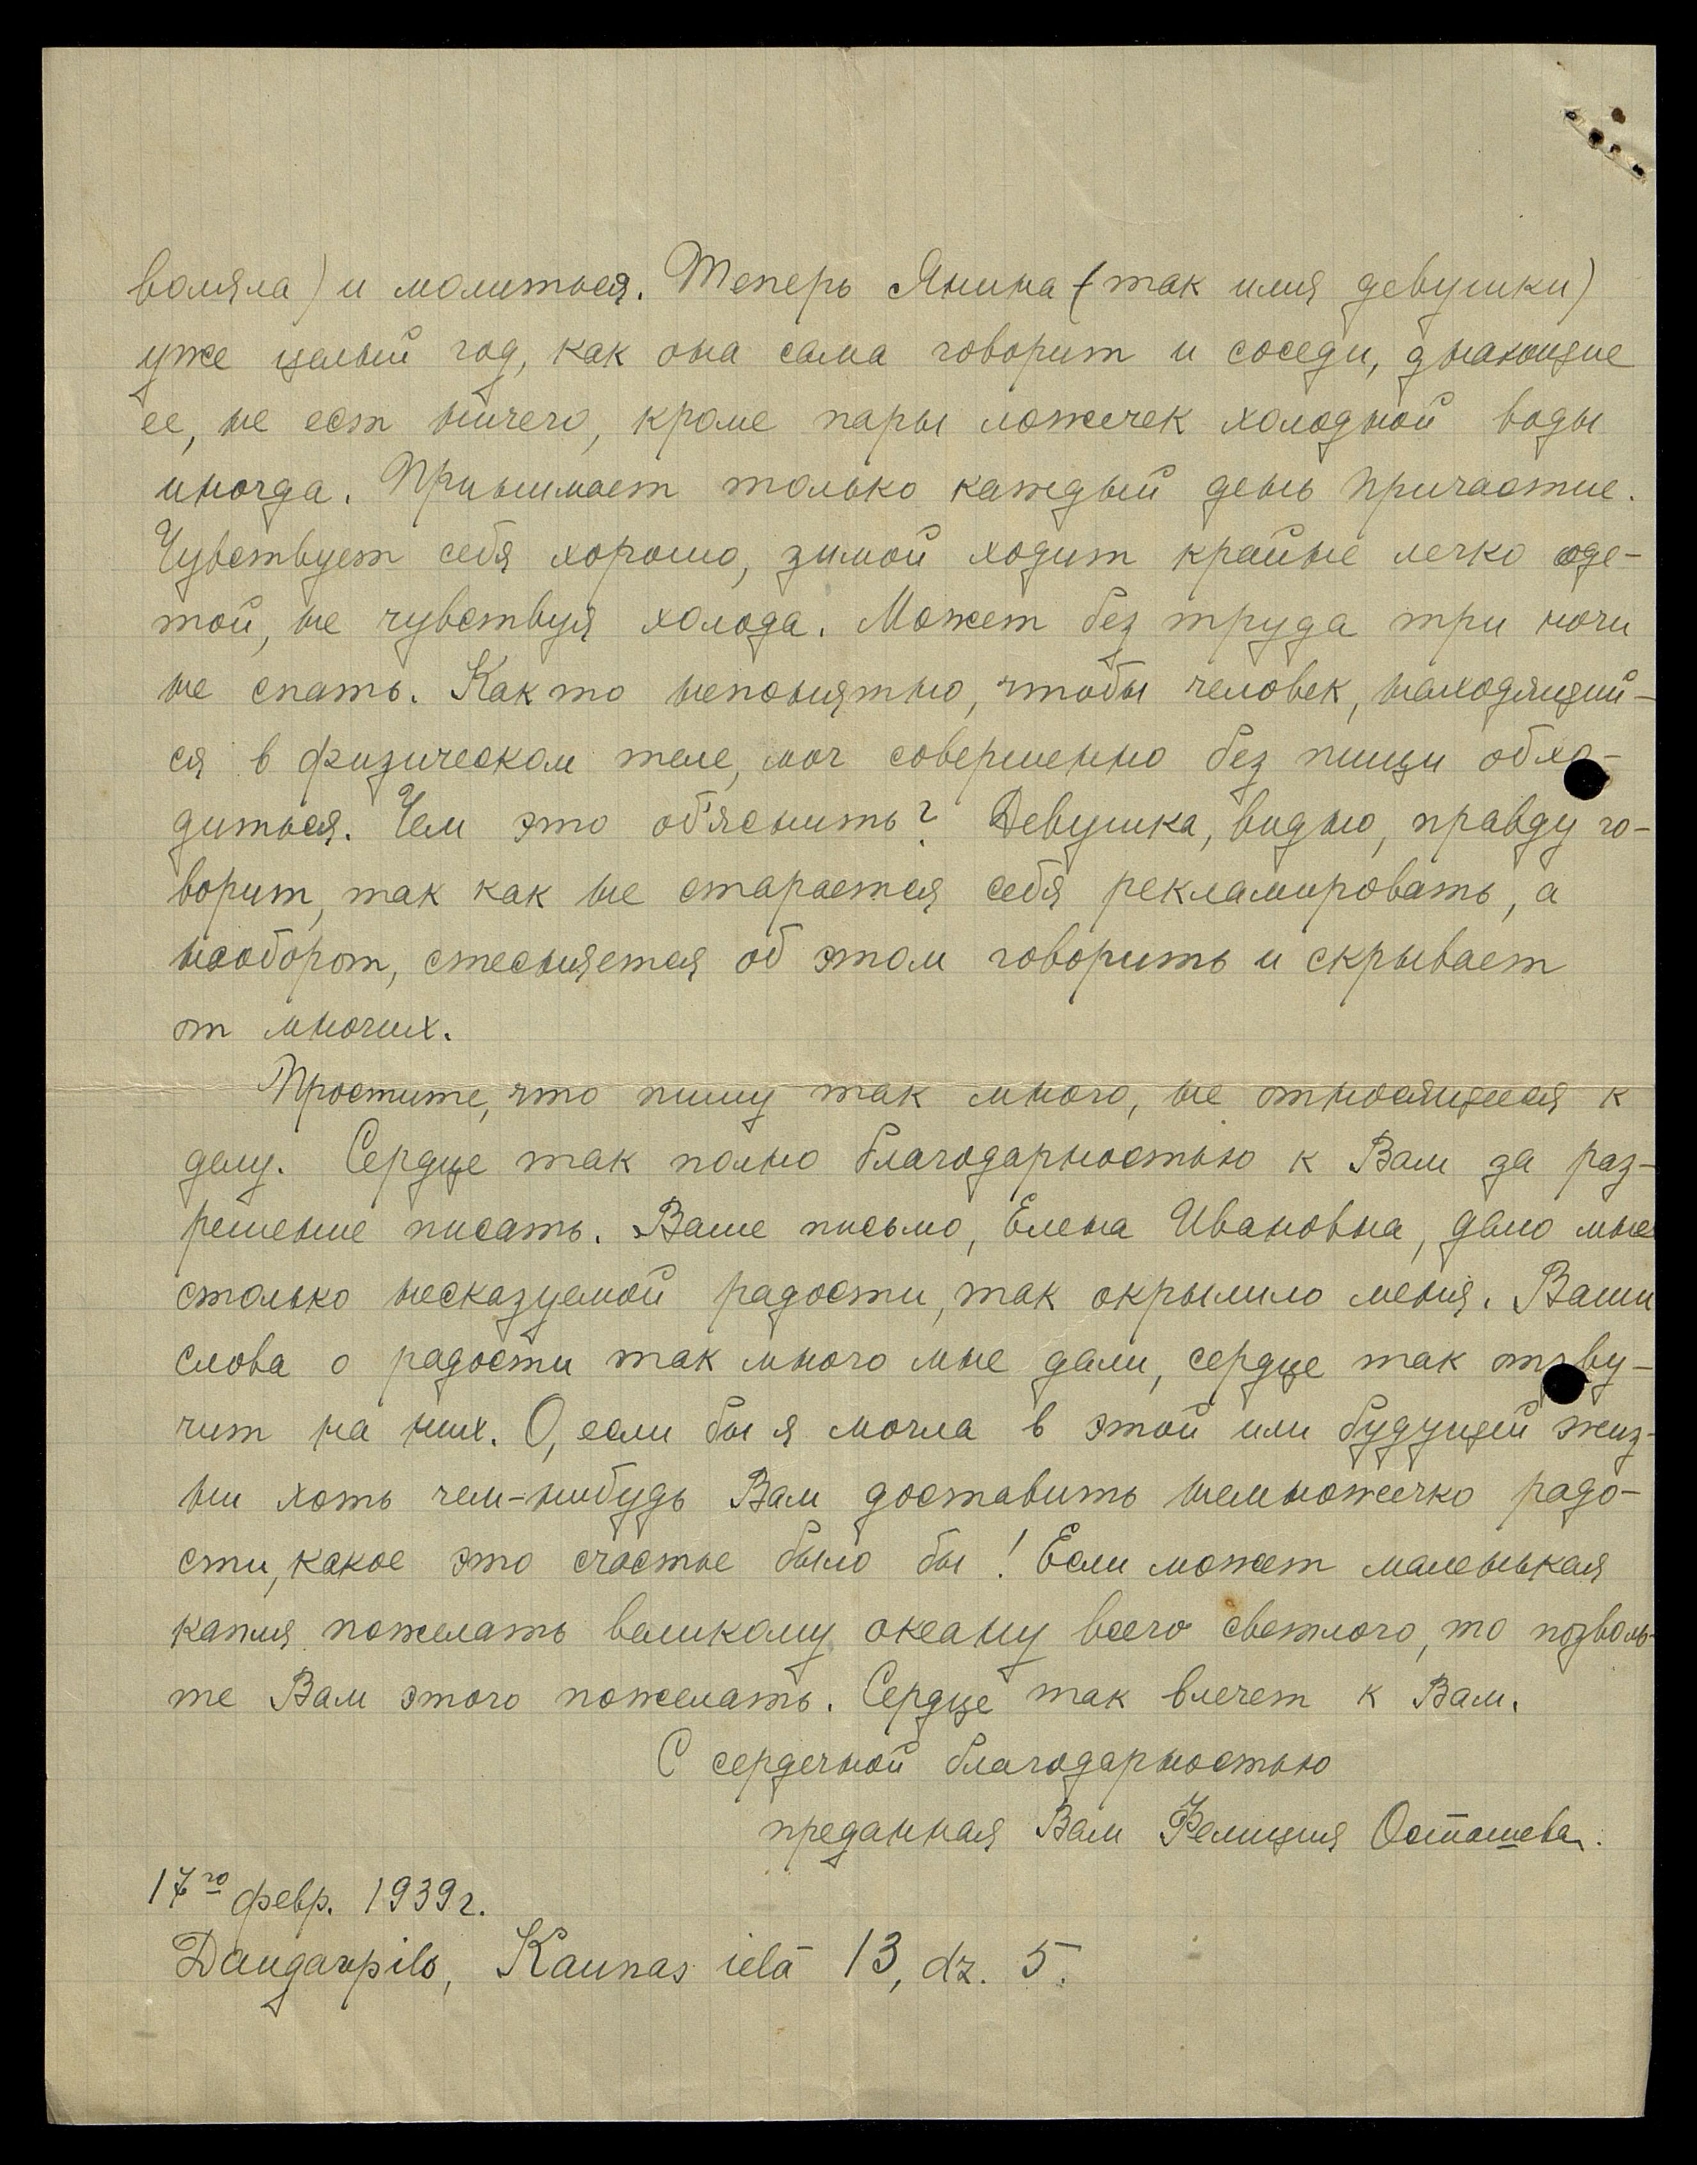 воляла) и молиться. Теперь Янина (так имя девушки)
уже целый год, как она сама говорит и соседи, знающие
ее, не ест ничего, кроме пары ложечек холодной воды
иногда. Принимает только каждый день причастие.
Чувствует себя хорошо, зимой ходит крайне легко оде-
той, не чувствуя холода. Может без труда три ночи
не спать. Как то непонятно, чтобы человек, находящий-
ся в физическом теле, мог совершенно без пищи обхо-
диться. Чем это об'яснить? Девушка, видно, правду го-
ворит, так как не старается себя рекламировать, а
наоборот, стесняется об этом говорить и скрывает
от многих.
Простите, что пишу так много, не относящееся к
делу. Сердце так полно благодарностью к Вам за раз-
решение писать. Ваше письмо, Елена Ивановна, дало мне
столько несказуемой радости, так окрылило меня. Ваши
слова о радости так много мне дали, сердце так отзву-
чит на них. О, если бы я могла в этой или будущей жиз-
ни хоть чем-нибудь Вам доставить немножечко радо-
сти, какое это счастье было бы! Если может маленькая
капля пожелать великому океану всего светлого, то позволь-
те Вам этого пожелать. Сердце так влечет к Вам.
С сердечной благодарностью
преданная Вам Фелиция Осташева.
17го февр. 1939г.
Daugavpils, Kaunas ielā 13, dz. 5.